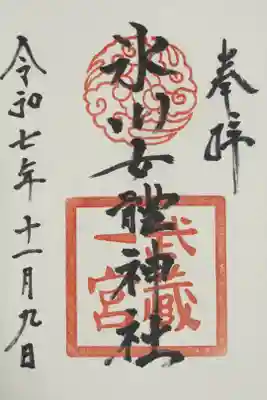 奉拝
氷川女體神社
武蔵
一宮
令和七年十一月九日